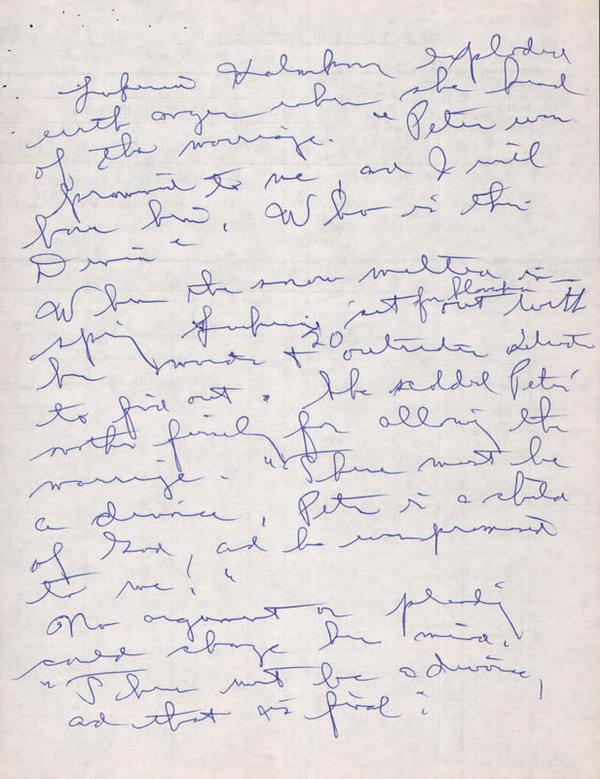 exploded
with anger when she heard
of the marriage. "Peter was
promised to me, and I will
have him. Who is this
When the snow melted in
spring set out with
her & 20
to find out. She scolded Peter's
mother fiercely for allowing the
marriage. "There must be
a divorce, Peter is a child
of God, and he was promised
to me!"
No argument or pleading
could change her mind.
"There must be a divorce,
and that is final!